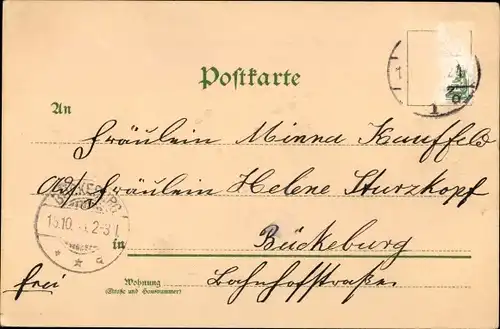 Postkarte
An
Fräulein Minna Kauffeld
Adr. Fräulein Helene Sturzkopf
BÜCKEBURG
15.10. 2-3 N
* * a
in Bückeburg
frei
Wohnung Bahnhofstraße
(Straße und Hausnummer)
1
a